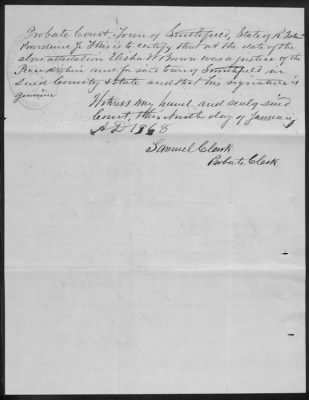 Probate Court, Town of Smithfield, State of R.
Providence This is to certify that at the date of the
above attestation Elisha Brown was a justice of the
Peace within and for said town of Smithfield in
said County & State and that his signature is
genuine
Witness my hand and seal of said
Court, this Ninth day of January
A D 1868
Samuel Clark
Probate Clerk